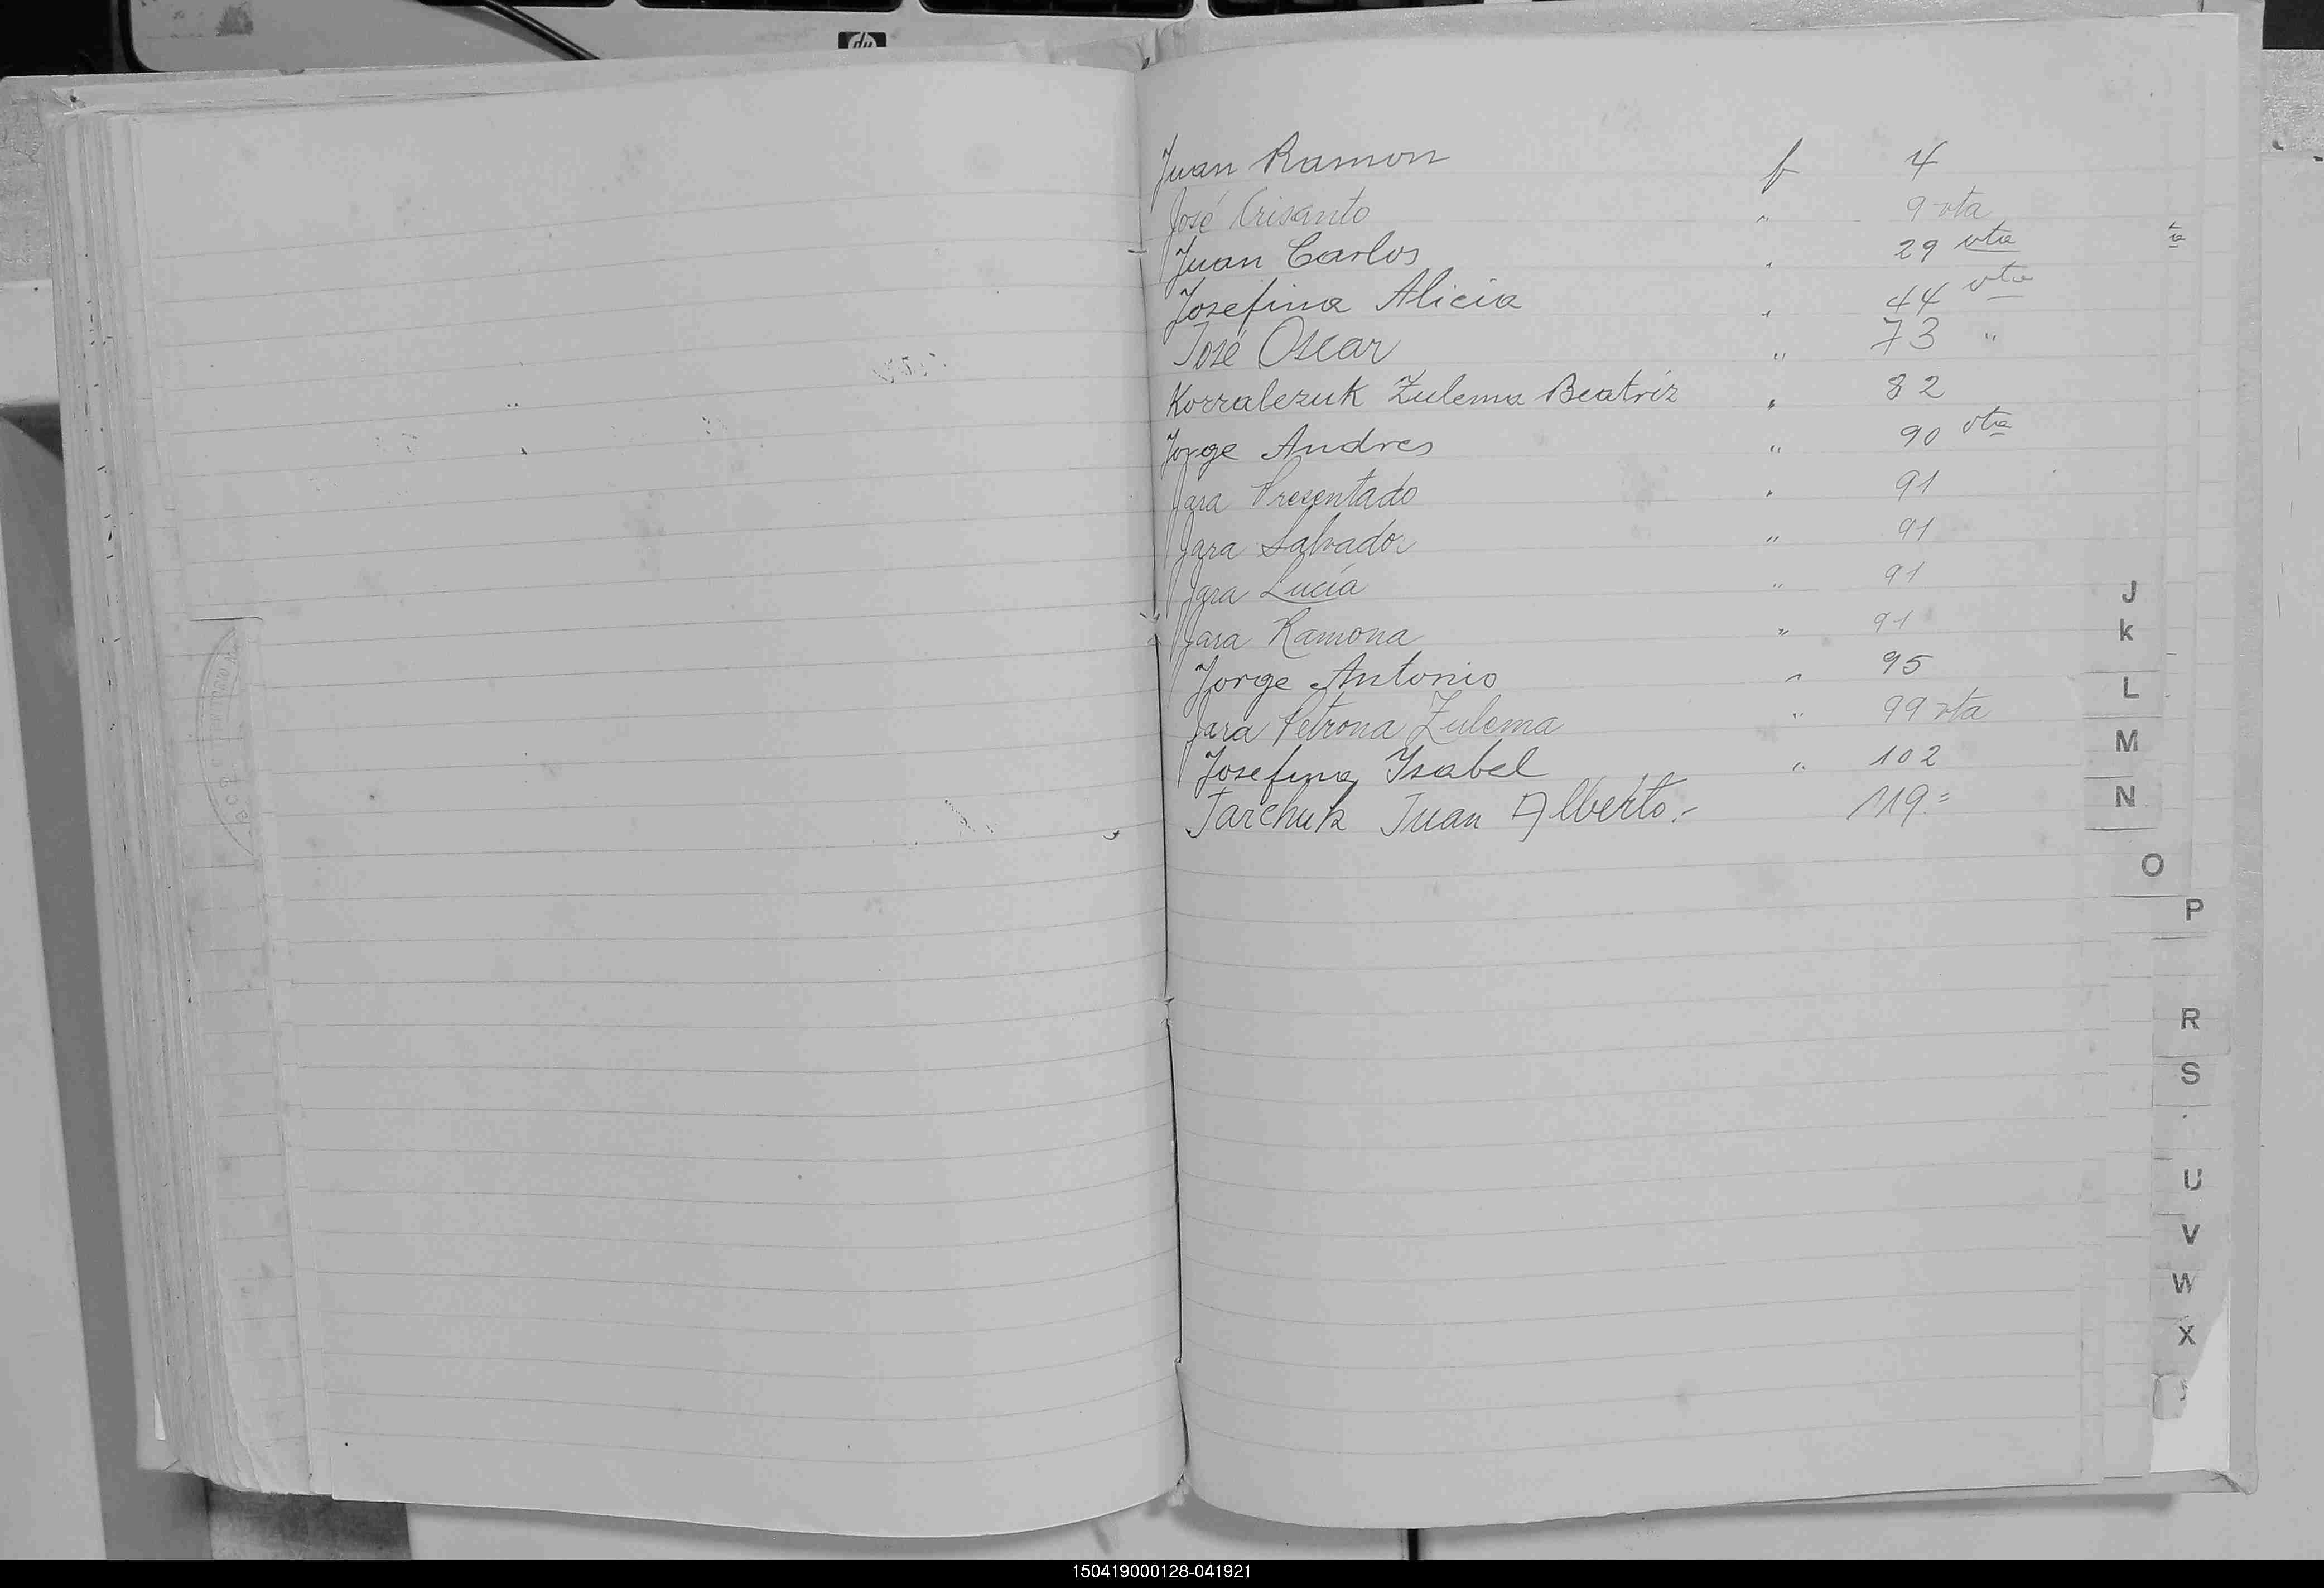 hp
Juan Ramon f 4
José Crisanto " 9 vta
Juan Carlos " 29 vta
Josefina Alicia " 44 vta
José Oscar " 73 "
Korralezuk Zulema Beatriz " 82
Jorge Andres " 90 vta
Jara Presentado " 91
Jara Salvador " 91
Jara Lucía " 91
Jara Ramona " 91
Jorge Antonio " 95
Jara Petrona Zulema " 99 vta
Josefina Ysabel " 102
Jarchuk Juan Alberto.- 119.=
J
k
L
M
N
O
P
R
S
U
V
W
X
150419000128-041921